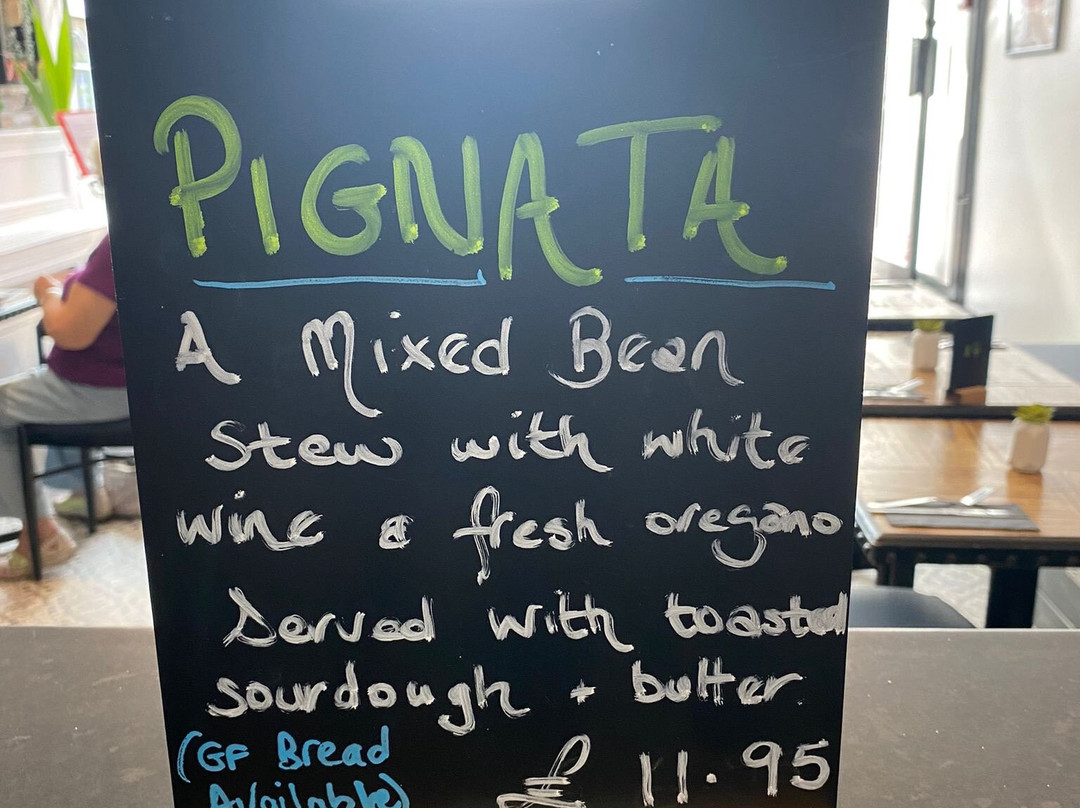 PIGNATA
A Mixed Bean
Stew with white
wine & fresh oregano
Served with toasted
sourdough + butter
(GF Bread
Available)
£ 11.95